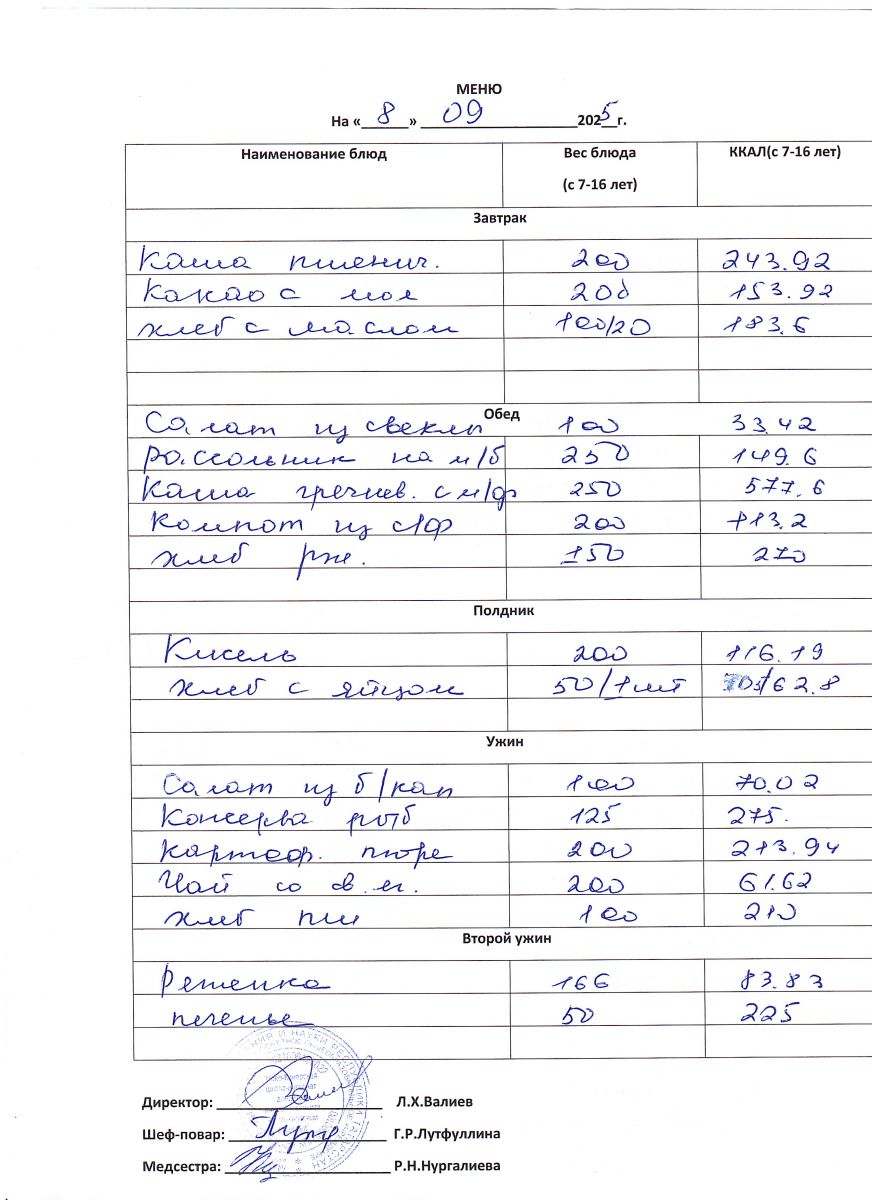 МЕНЮ
На « 8 » 09 2025 г.
Наименование блюд Вес блюда (с 7-16 лет) ККАЛ(с 7-16 лет)
Завтрак
Каша пшенич. 200 243.92
Какао с мол 200 153.92
хлеб с маслом 100/20 183.6
Обед
Салат из свеклы 100 33.42
Рассольник на м/б 250 149.6
Каша гречнев. с м/ф 250 577.6
Компот из с/ф 200 113.2
хлеб рж. 150 270
Полдник
Кисель 200 116.19
хлеб с яйцом 50/1шт 105/62.8
Ужин
Салат из б/кап 100 70.02
Консерва рыб 125 275.
картоф. пюре 200 213.94
Чай со св.яг. 200 61.62
хлеб пш 100 210
Второй ужин
Ряженка 166 83.83
печенье 50 225
Директор: Л.Х.Валиев
Шеф-повар: Г.Р.Лутфуллина
Медсестра: Р.Н.Нургалиева